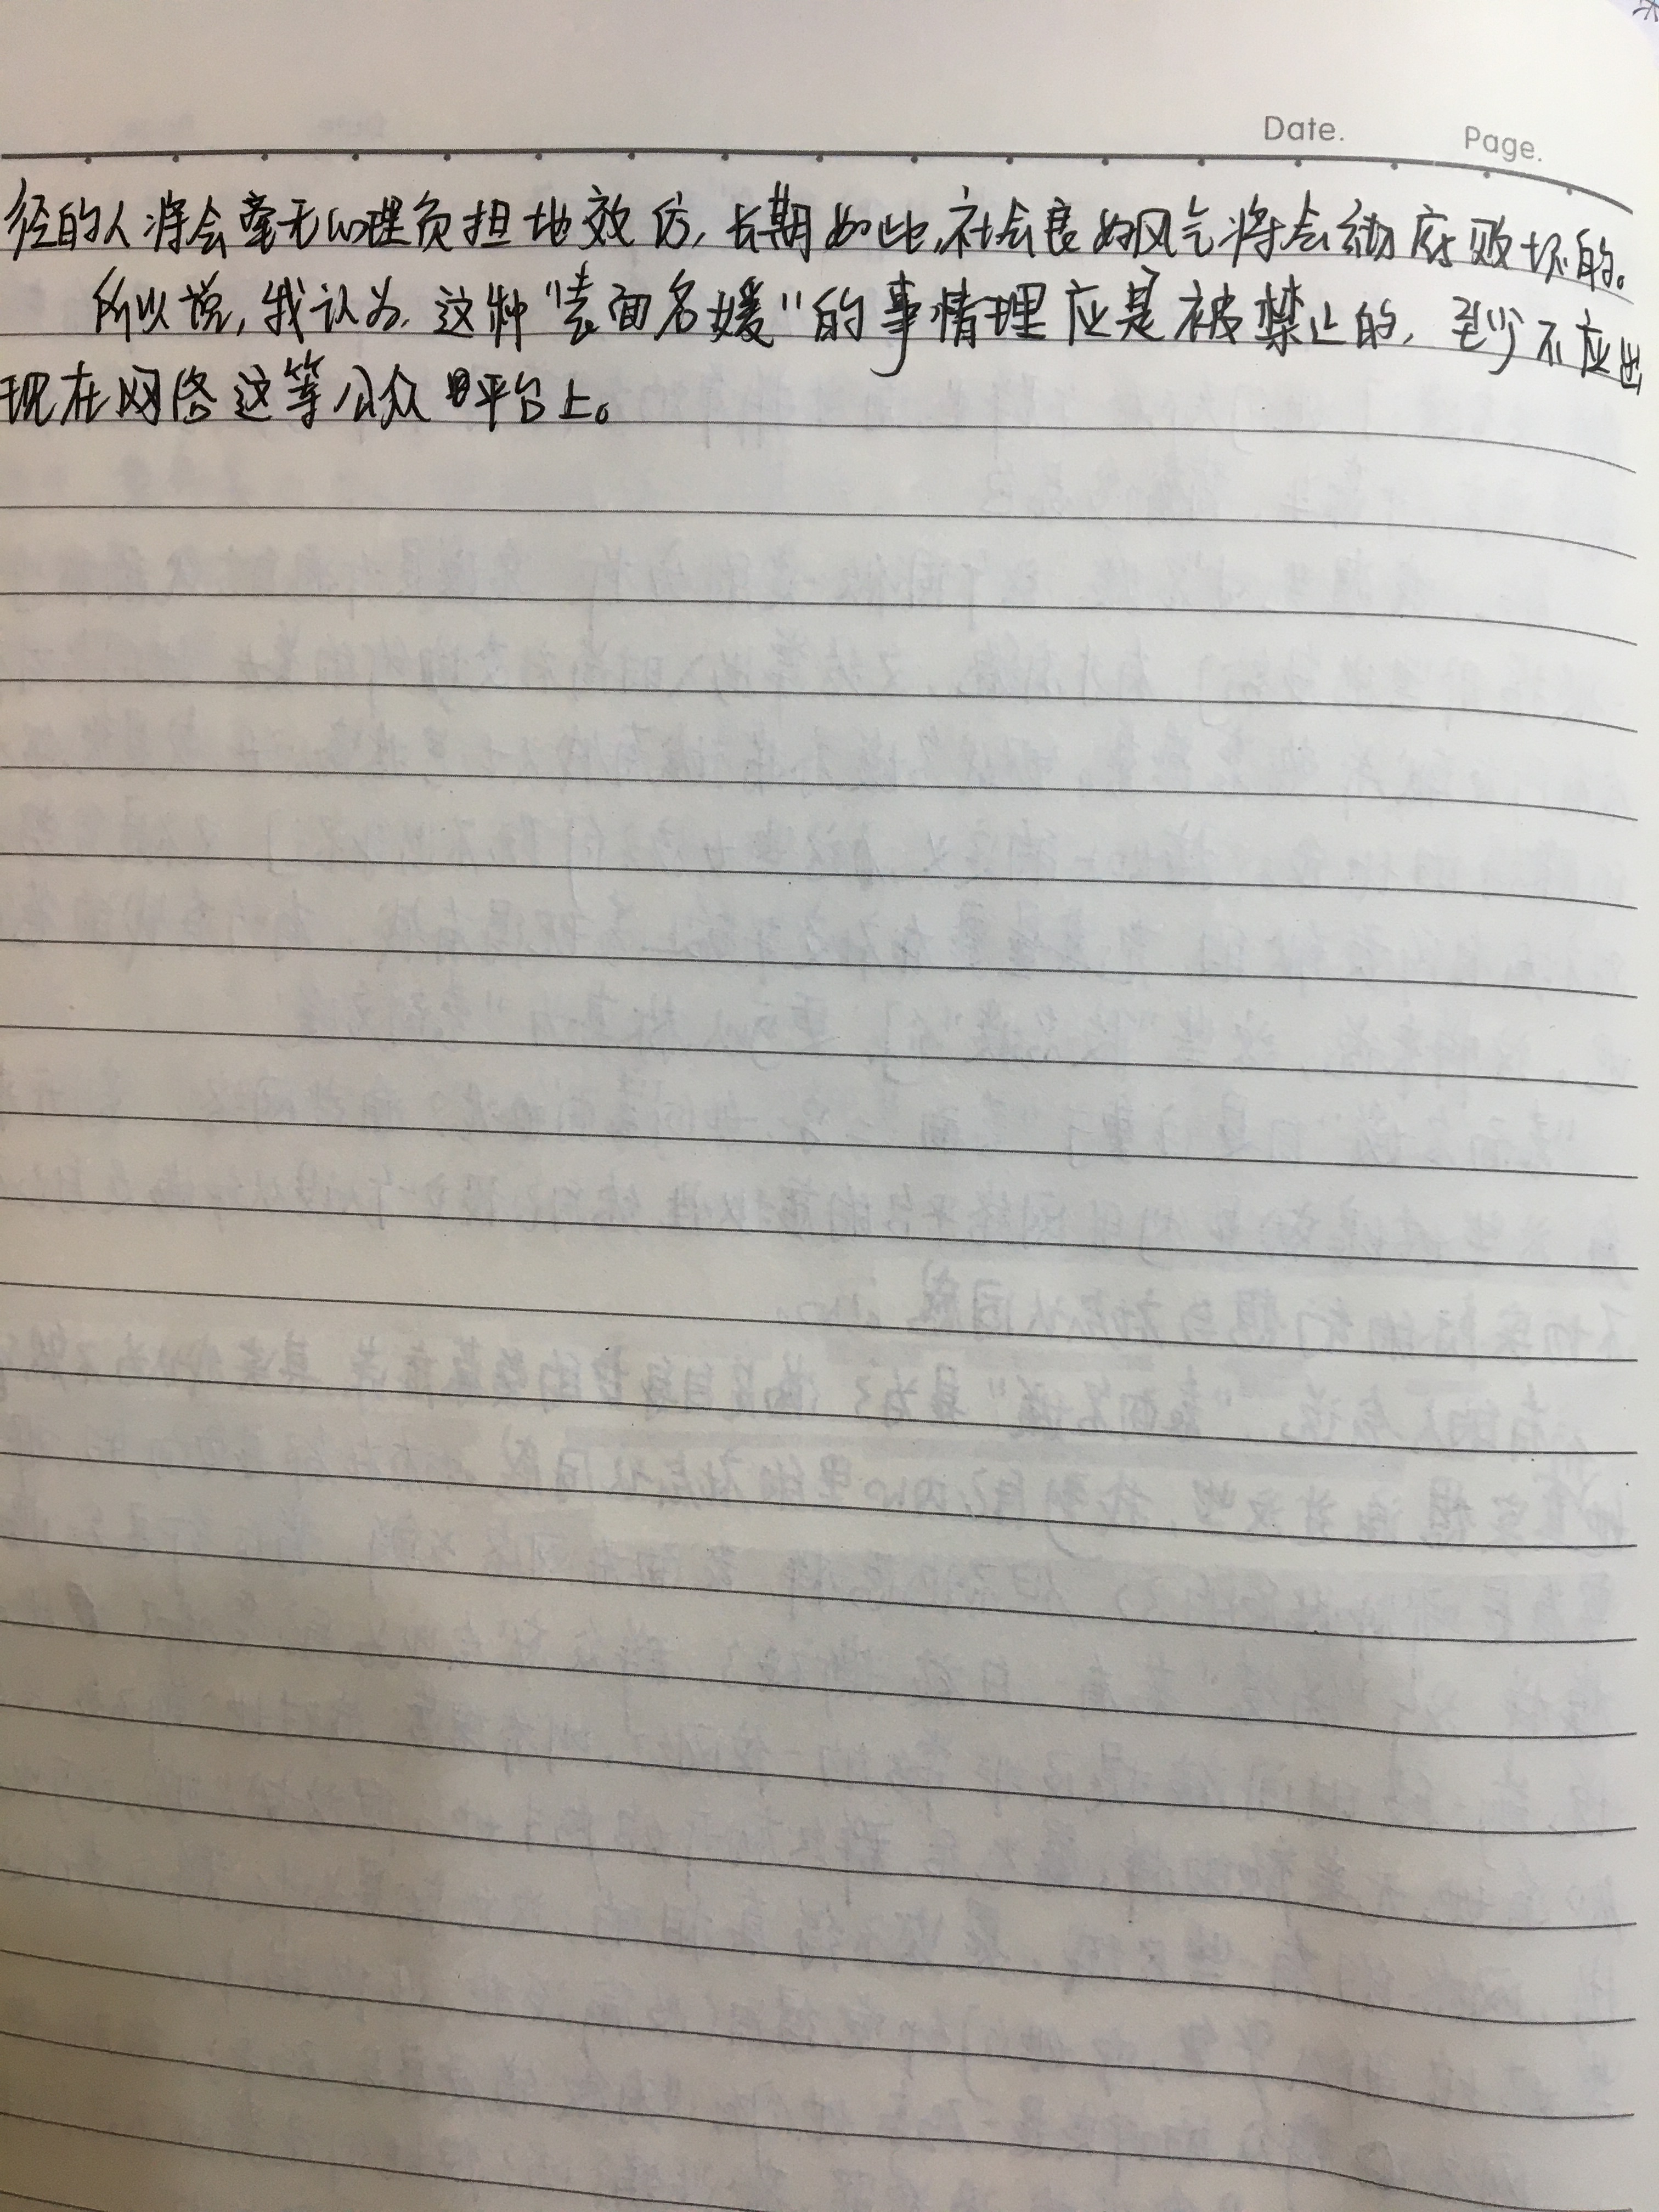 Date. Page.
径的人将会毫无心理负担地效仿,长期如此,社会良好风气将会被腐败坏的。
所以说,我认为,这种"表面名媛"的事情理应是被禁止的,至少不应出
现在网络这等公众平台上。